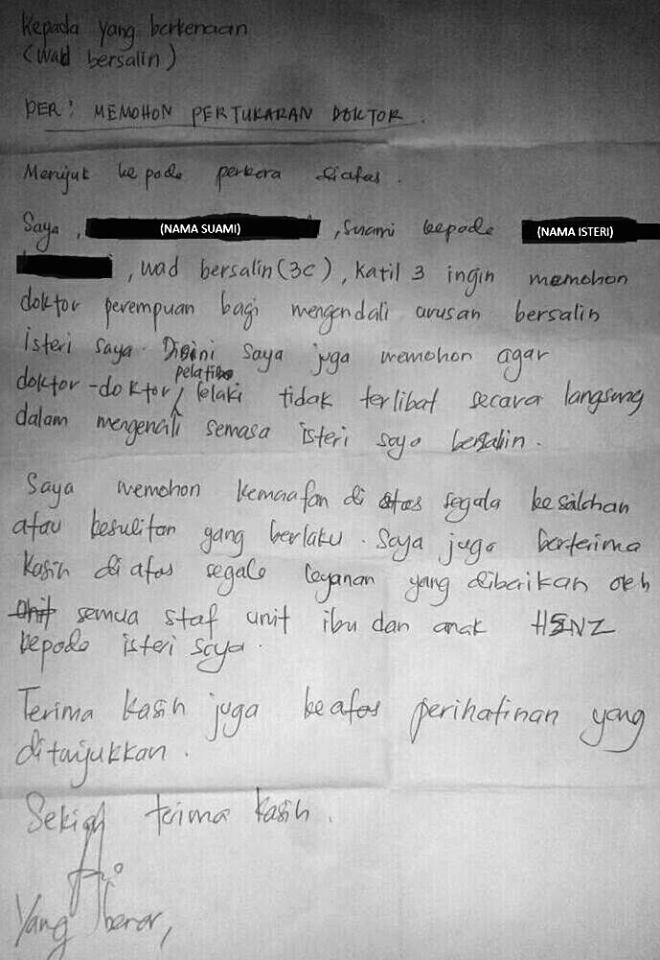 Kepada yang berkenaan
(Wad bersalin)
PER: MEMOHON PERTUKARAN DOKTOR.
Merujuk kepada perkara diatas.
Saya, (NAMA SUAMI), suami kepada (NAMA ISTERI)
, wad bersalin (3c), katil 3 ingin memohon
doktor perempuan bagi mengendali urusan bersalin
isteri saya. Disini saya juga memohon agar
pelatih
doktor-doktor, lelaki tidak terlibat secara langsung
dalam mengendali semasa isteri saya bersalin.
Saya memohon kemaafan di atas segala kesalahan
atau kesulitan yang berlaku. Saya juga berterima
kasih di atas segala layanan yang diberikan oleh
unit semua staf unit ibu dan anak HSNZ
kepada isteri saya.
Terima kasih juga keatas perihatinan yang
ditunjukkan.
Sekian terima kasih.
Yang benar,